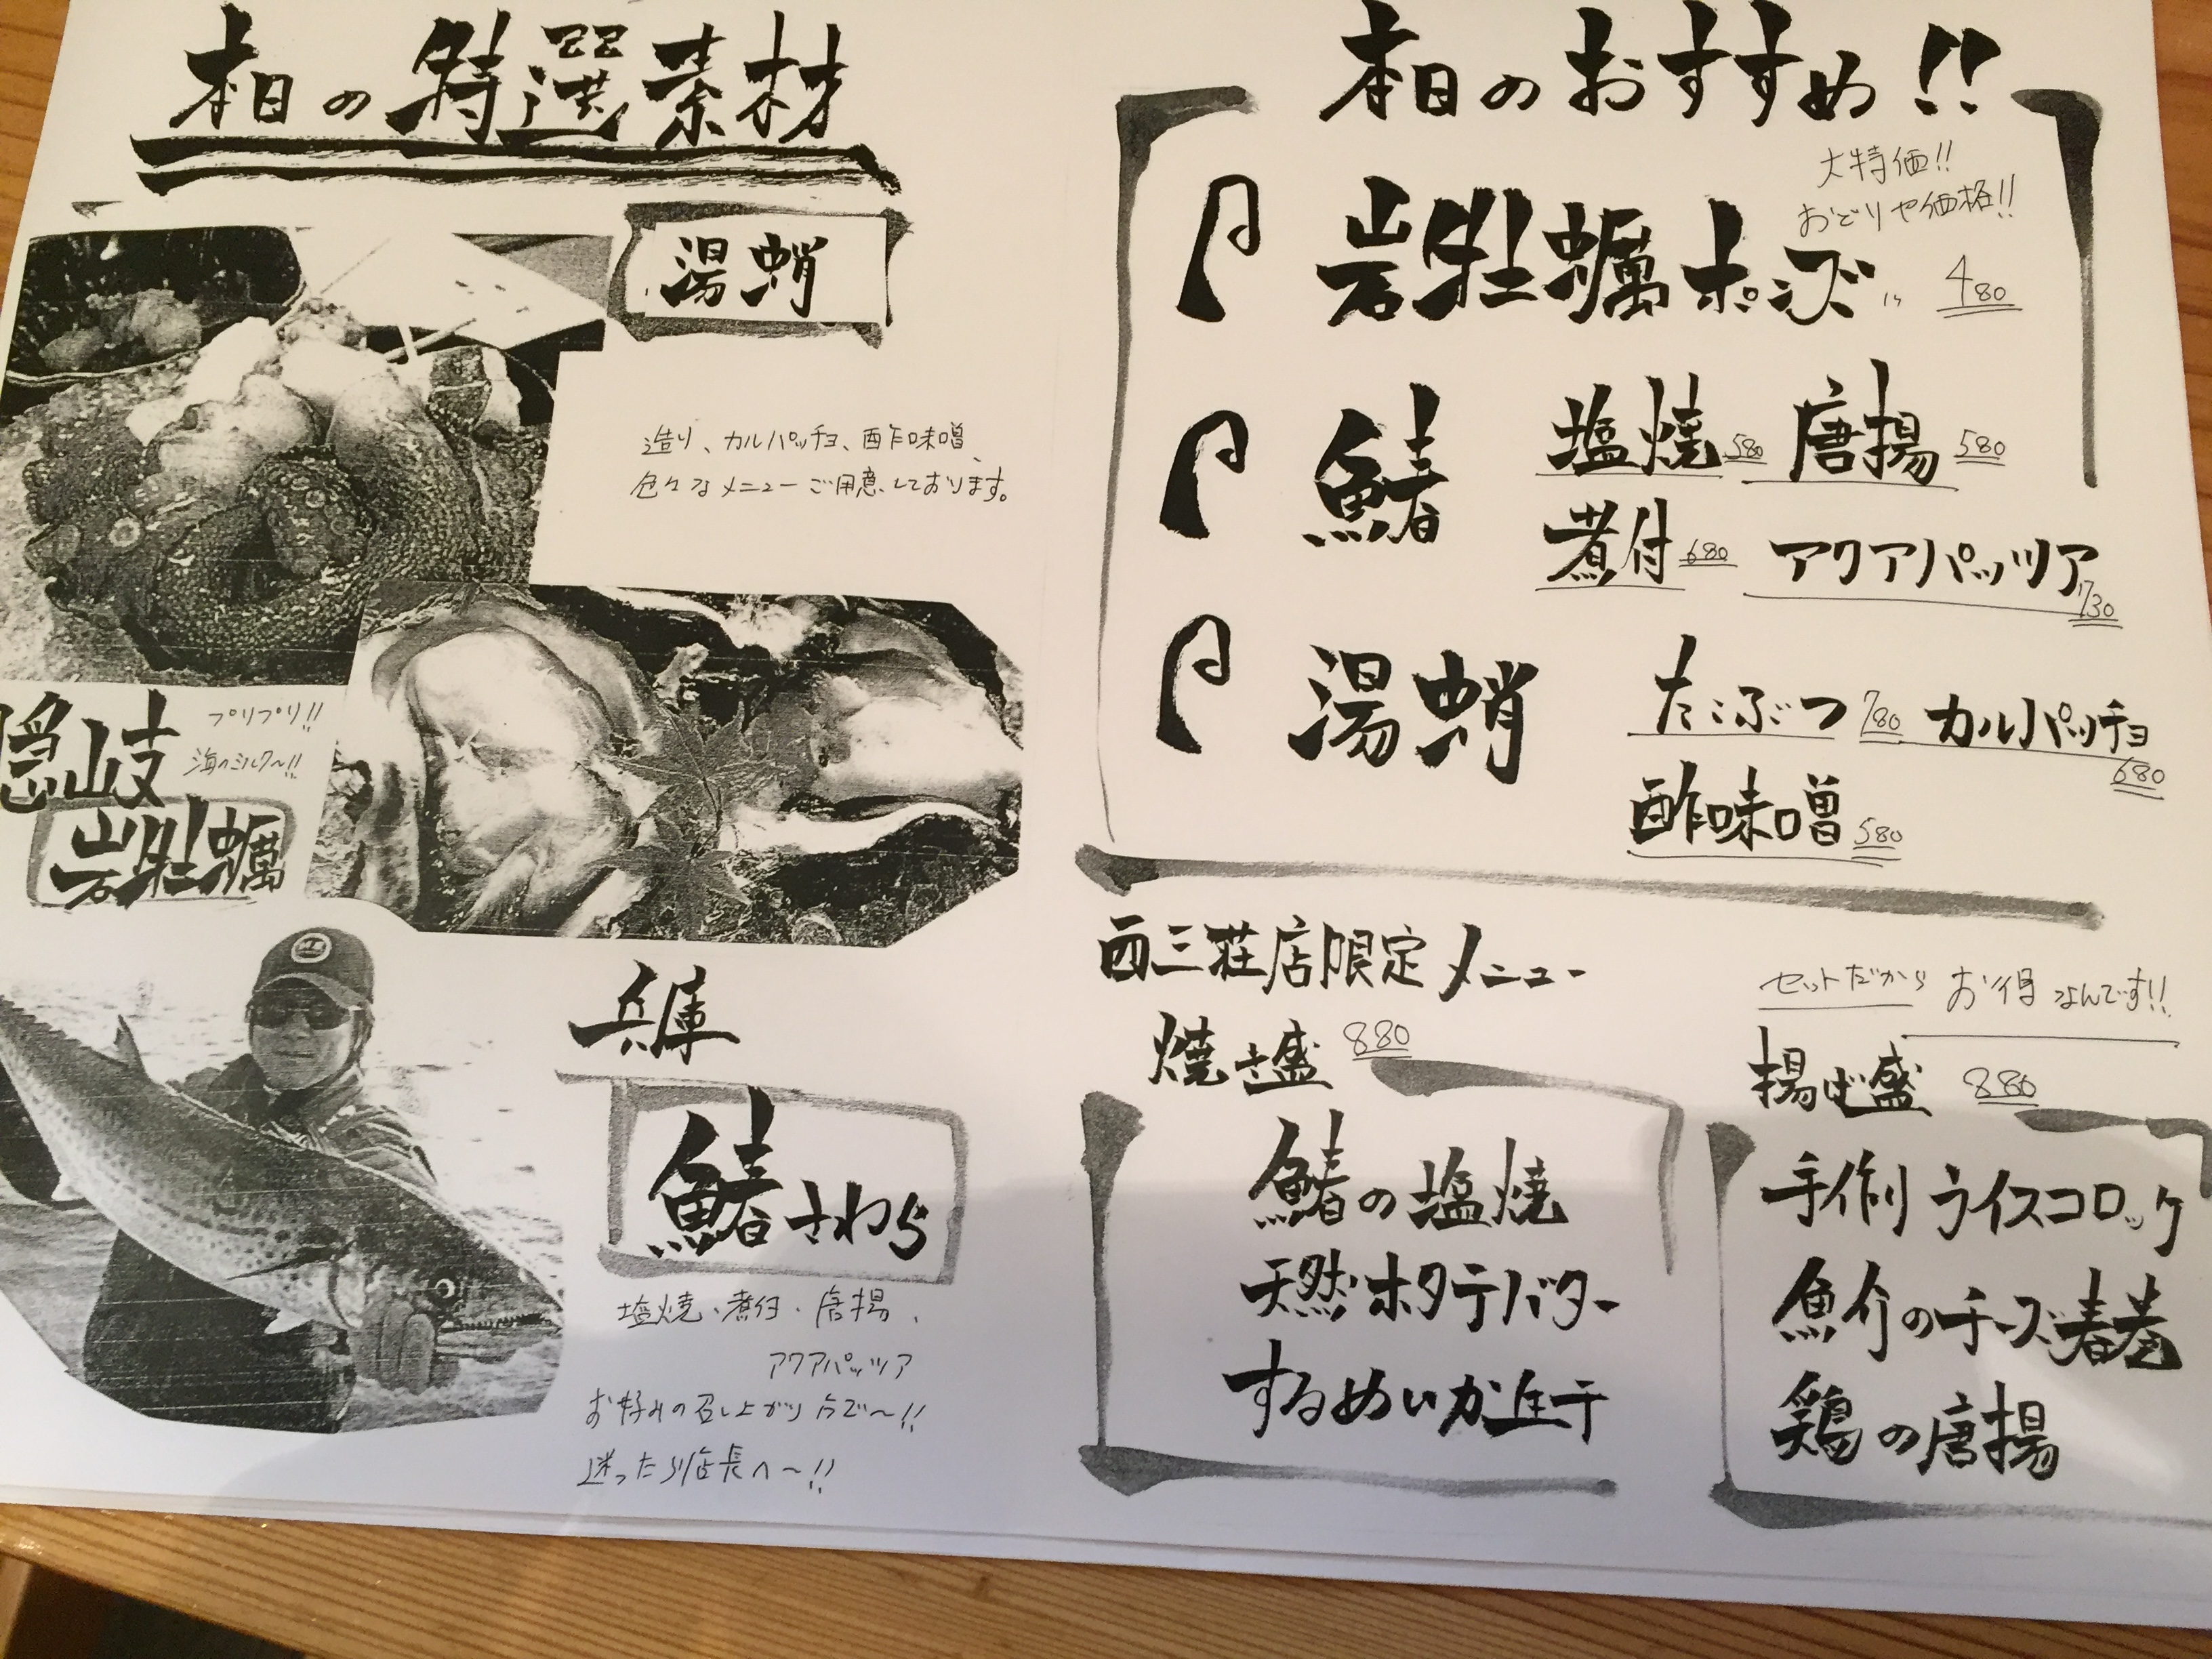 本日の特選素材
湯蛸
造り、カルパッチョ、酢味噌、
色々なメニューご用意しております。
隠岐
プリプリ!!
海のミルク〜!!
岩牡蠣
兵庫
鰆さわら
塩焼、煮付、唐揚、
アクアパッツァ
お好みの召し上がり方で〜!!
迷ったら店長へ〜!!
本日のおすすめ!!
大特価!!
おどりや価格!!
岩牡蠣ポン酢 480
鰆 塩焼 580 唐揚 580
煮付 680 アクアパッツァ 730
湯蛸 たこぶつ 780 カルパッチョ 680
酢味噌 580
西三荘店限定メニュー
セットだから お得なんです!!
焼き盛 880
鰆の塩焼
天然ホタテバター
するめいか一夜干
揚げ盛 880
手作りライスコロッケ
魚介のチーズ春巻
鶏の唐揚